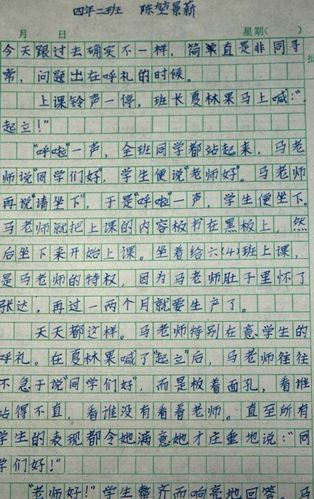 四年二班 陈堃景新
月 日 星期( )
今天跟过去确实不一样，简直是非同寻
常，问题出在呼礼的时候。
上课铃声一停，班长夏林果马上喊：“
起立！”
“呼啦”一声，全班同学都站起来，马老
师说“同学们好”，学生便说“老师好”。马老师
再说“请坐下”，于是“呼啦”一声，学生便坐下。
马老师就把上课的内容板书在黑板上，然
后坐下来开始上课。坐着给六（4）班上课，
是马老师的特权，因为马老师肚子里怀了
张达，再过一两个月就要生产了。
天天都这样。马老师特别在意学生的
呼礼。在夏林果喊了“起立”后，马老师往往
不急于说“同学们好”，而是板着面孔，看谁
站得不直，看谁没有看着老师。直至所有
学生的表现都令她满意她才庄重地说：“同
学们好！”
“老师好！”学生整齐而响亮地回答。马